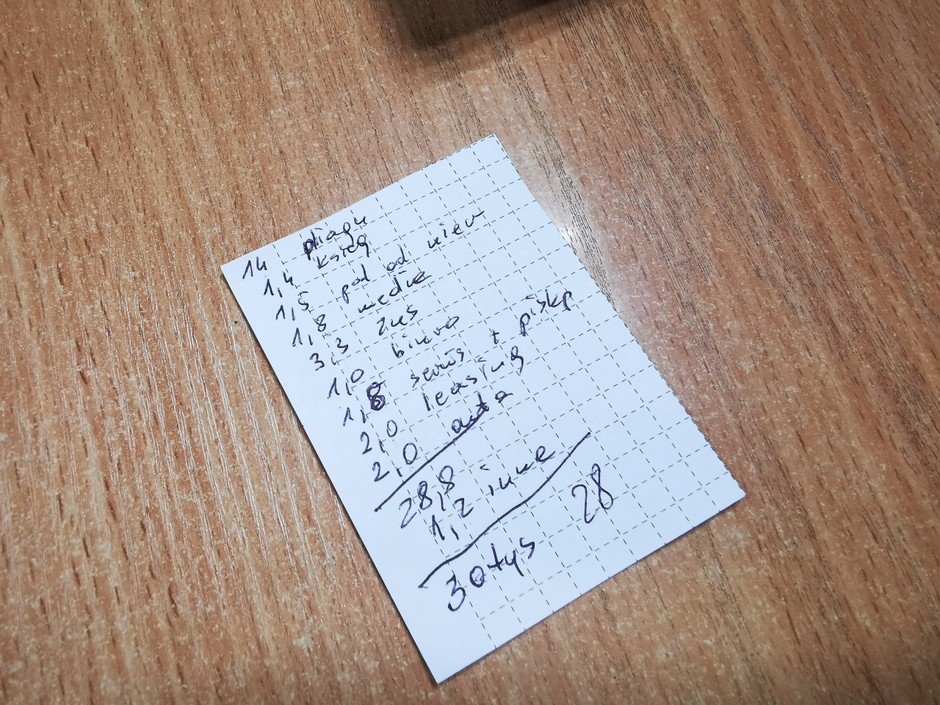 14 pliagu
1,4 księg
1,5 pod od nier
1,8 media
3,3 zus
1,0 biuro
1,8 serwis + piskp
2,0 leasing
2,0 auta
28,8
1,2 inne
30 tys 28